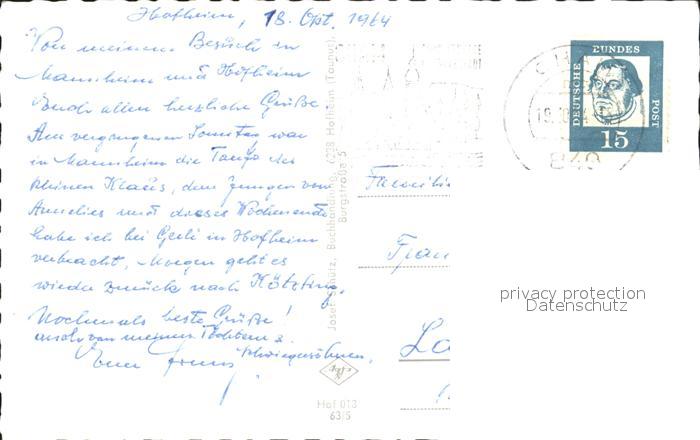 Hofheim, 18. Okt. 1964
Von meinem Besuch in
Mannheim und Hofheim
Euch allen herzliche Grüße.
Am vergangenen Sonntag war
in Mannheim die Taufe des
kleinen Klaus, dem Jungen von
Annelies und dieses Wochenende
habe ich bei Gerli in Hofheim
verbracht, Morgen geht es
wieder zurück nach Kötzting.
Nochmals beste Grüße!
auch von meinen Töchtern u.
Schwiegersöhnen,
Euer
Josef Schütz, Buchhandlung, 6238 Hofheim (Taunus)
Burgstraße 5
Hof 013
63/5
DEUTSCHE
BUNDES
POST
15
840
Familie
Frau
privacy protection
Datenschutz